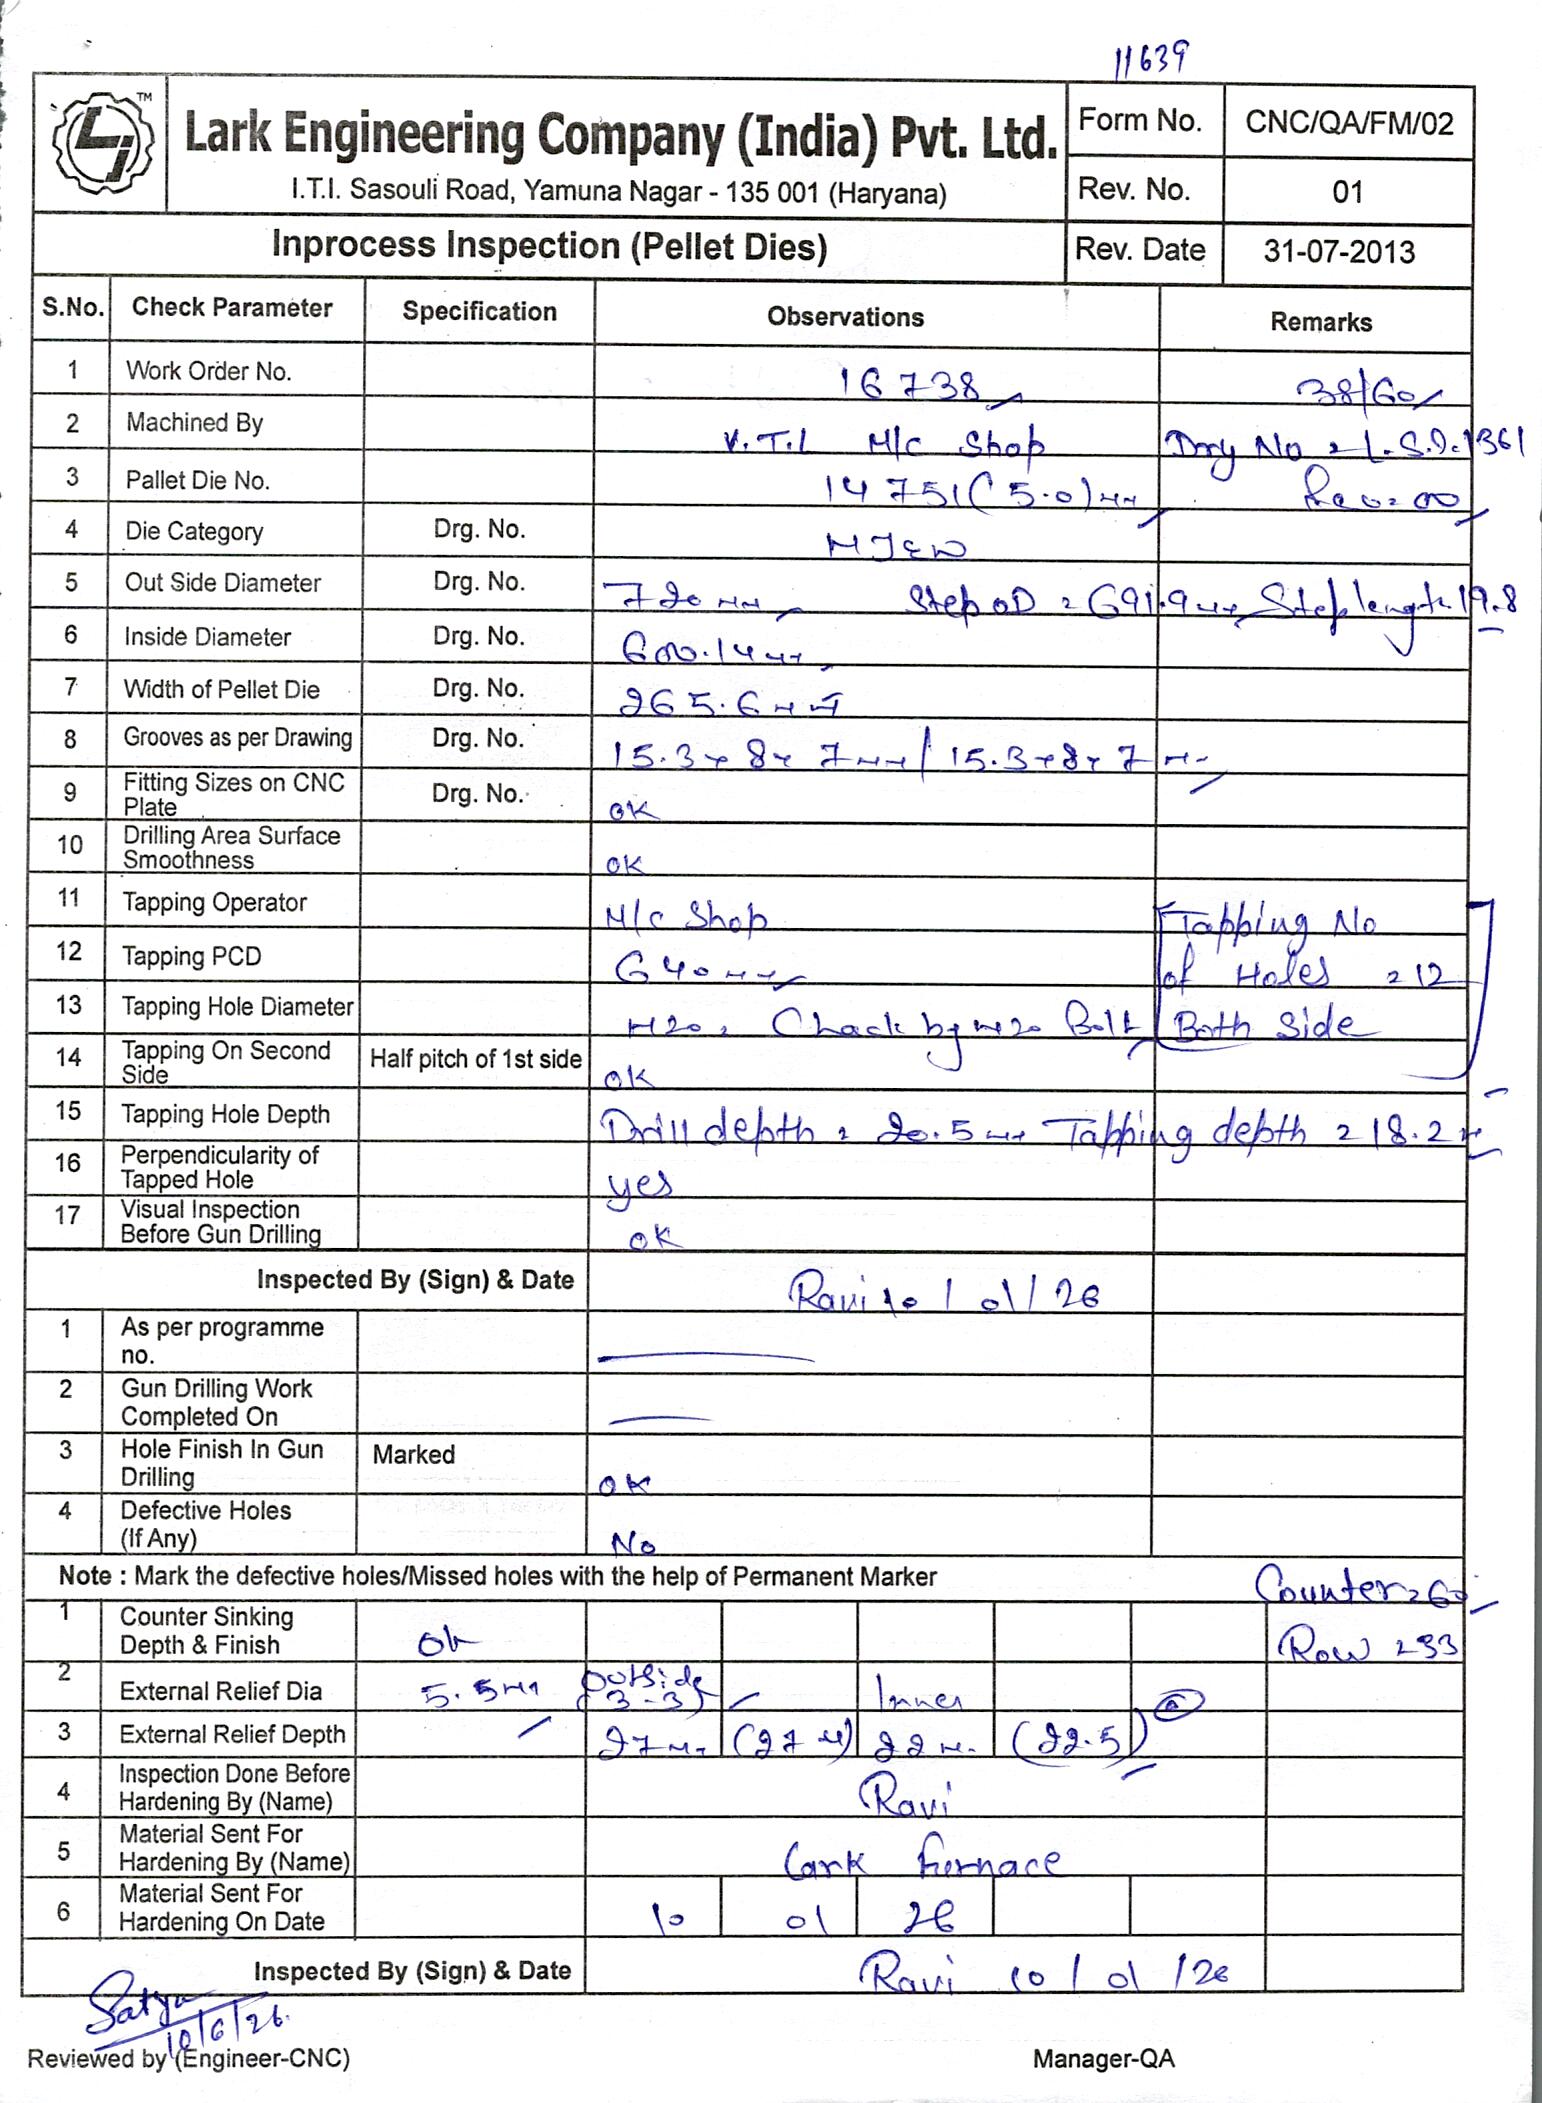 11639
TM
Lark Engineering Company (India) Pvt. Ltd.
I.T.I. Sasouli Road, Yamuna Nagar - 135 001 (Haryana)
Form No. CNC/QA/FM/02
Rev. No. 01
Inprocess Inspection (Pellet Dies)
Rev. Date 31-07-2013
S.No. Check Parameter Specification Observations Remarks
1 Work Order No. 16738 38/60
2 Machined By V.T.L M/c Shop Drg No = L.S.D.1361
3 Pallet Die No. 14751 (5.0) mm Rev = 00
4 Die Category Drg. No.
5 Out Side Diameter Drg. No. 720 mm Step OD = 691.9 mm Step length 19.8
6 Inside Diameter Drg. No. 600.14 mm
7 Width of Pellet Die Drg. No. 265.6 mm
8 Grooves as per Drawing Drg. No. 15.3 x 8 x 7 mm / 15.3 x 8 x 7 m
9 Fitting Sizes on CNC Plate Drg. No. OK
10 Drilling Area Surface Smoothness OK
11 Tapping Operator M/c Shop Tapping No
12 Tapping PCD 640 mm of Holes = 12
13 Tapping Hole Diameter M20 = Chack by M20 Bolt Both Side
14 Tapping On Second Side Half pitch of 1st side OK
15 Tapping Hole Depth Drill depth = 20.5 mm Tapping depth = 18.2 m
16 Perpendicularity of Tapped Hole yes
17 Visual Inspection Before Gun Drilling OK
Inspected By (Sign) & Date Ravi 10/01/26
1 As per programme no.
2 Gun Drilling Work Completed On
3 Hole Finish In Gun Drilling Marked OK
4 Defective Holes (If Any) No
Note : Mark the defective holes/Missed holes with the help of Permanent Marker Counter = 60
1 Counter Sinking Depth & Finish Ok Row = 33
2 External Relief Dia 5.5 mm outside (3-3) Inner
3 External Relief Depth 27 m (27 m) 22 m. (22.5)
4 Inspection Done Before Hardening By (Name) Ravi
5 Material Sent For Hardening By (Name) Lark furnace
6 Material Sent For Hardening On Date 10 01 26
Inspected By (Sign) & Date Ravi 10/01/26
Satya
10/6/26.
Reviewed by (Engineer-CNC) Manager-QA